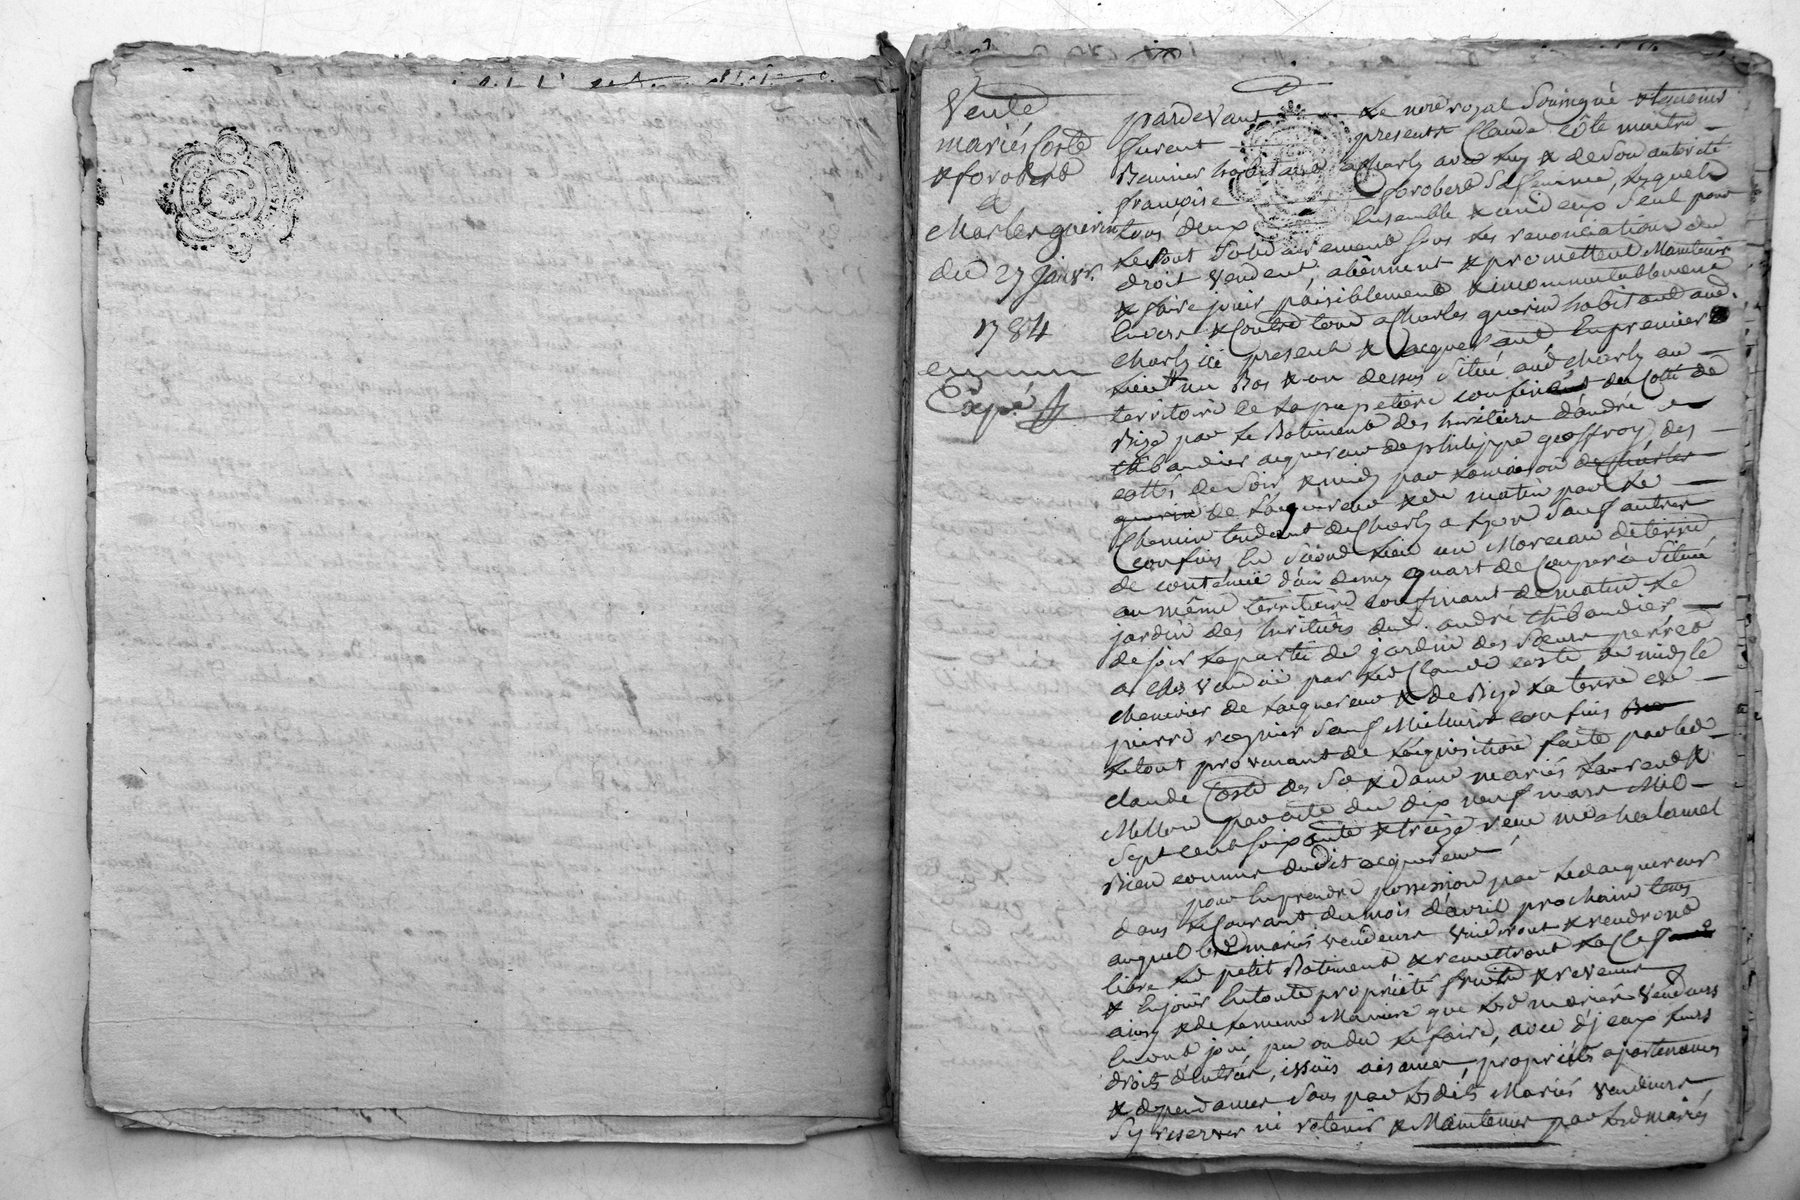 Vente
mariés Coste
& forobert
a
Charles guerin
du 27 Janvr.
1784
Expé
pardevant Le nore royal Soussigné & temoins
furent presents Claude Côte maitre
habitant a Charly avec luy & de Son autorité
françoise forobert Sa femme, Lesquels
tous deux Ensemble & un d'eux Seul pour
Le tout Solidairement Sous Les renonciations du
droit vendent, aliennent & promettent Maintenir
& faire jouir paisiblement & incommutablement
Envers & Contre tous a Charles guerin habitant aud.
Charly ici present & acquereur En premier
Lieu un Bas & un dessus Situé aud Charly au
territoire de La papeterie confiné du Cotté de
Bize par Le Batiment des heritiers d'andré
thibaudier acquereur de philippe geoffroy, des
cottés de Soir & midy par La maison de Charles
guerin de L'acquereur & de matin par Le
Chemin tendant de Charly a Lyon Sauf autres
Confins, En Second Lieu un Morceau de terre
de contenue d'un demy quart de Coupée Situé
au même territoire confinant de matin Le
jardin des heritiers dud. andré thibaudier
de soir La partie de jardin des Sœurs perret
a Elles vendue par Led Claude Coste de midy le
chenevier de L'acquereur & de Bize La terre de
pierre regnier Sauf Meilleurs confins
Le tout provenant de L'acquisition faite par led
Claude Coste des Sr & dame mariés Laurend &
Mellon par acte du dix neuf mars Mil
Sept cent soixante & treize recu me chalamel
Bien connue dudit acquereur
pour En prendre possession par Led acquereur
dans Le Courant du mois d'avril prochain tems
auquel les d mariés vendeurs vuideront & rendront
libre Led petit Batiment & remettront La Clef
& En jouir En toute propriété fruits & revenus
ainsy & de La meme Maniere que Lesd mariés vendeurs
En ont joui pu ou du Le faire, avec d'jceux Leurs
droits d'entrées, issües aisances, propriétés apartenances
& dependances Sans par Lesdits Mariés vendeurs
Sy reserver ni retenir & Maintenus par Lesd mariés